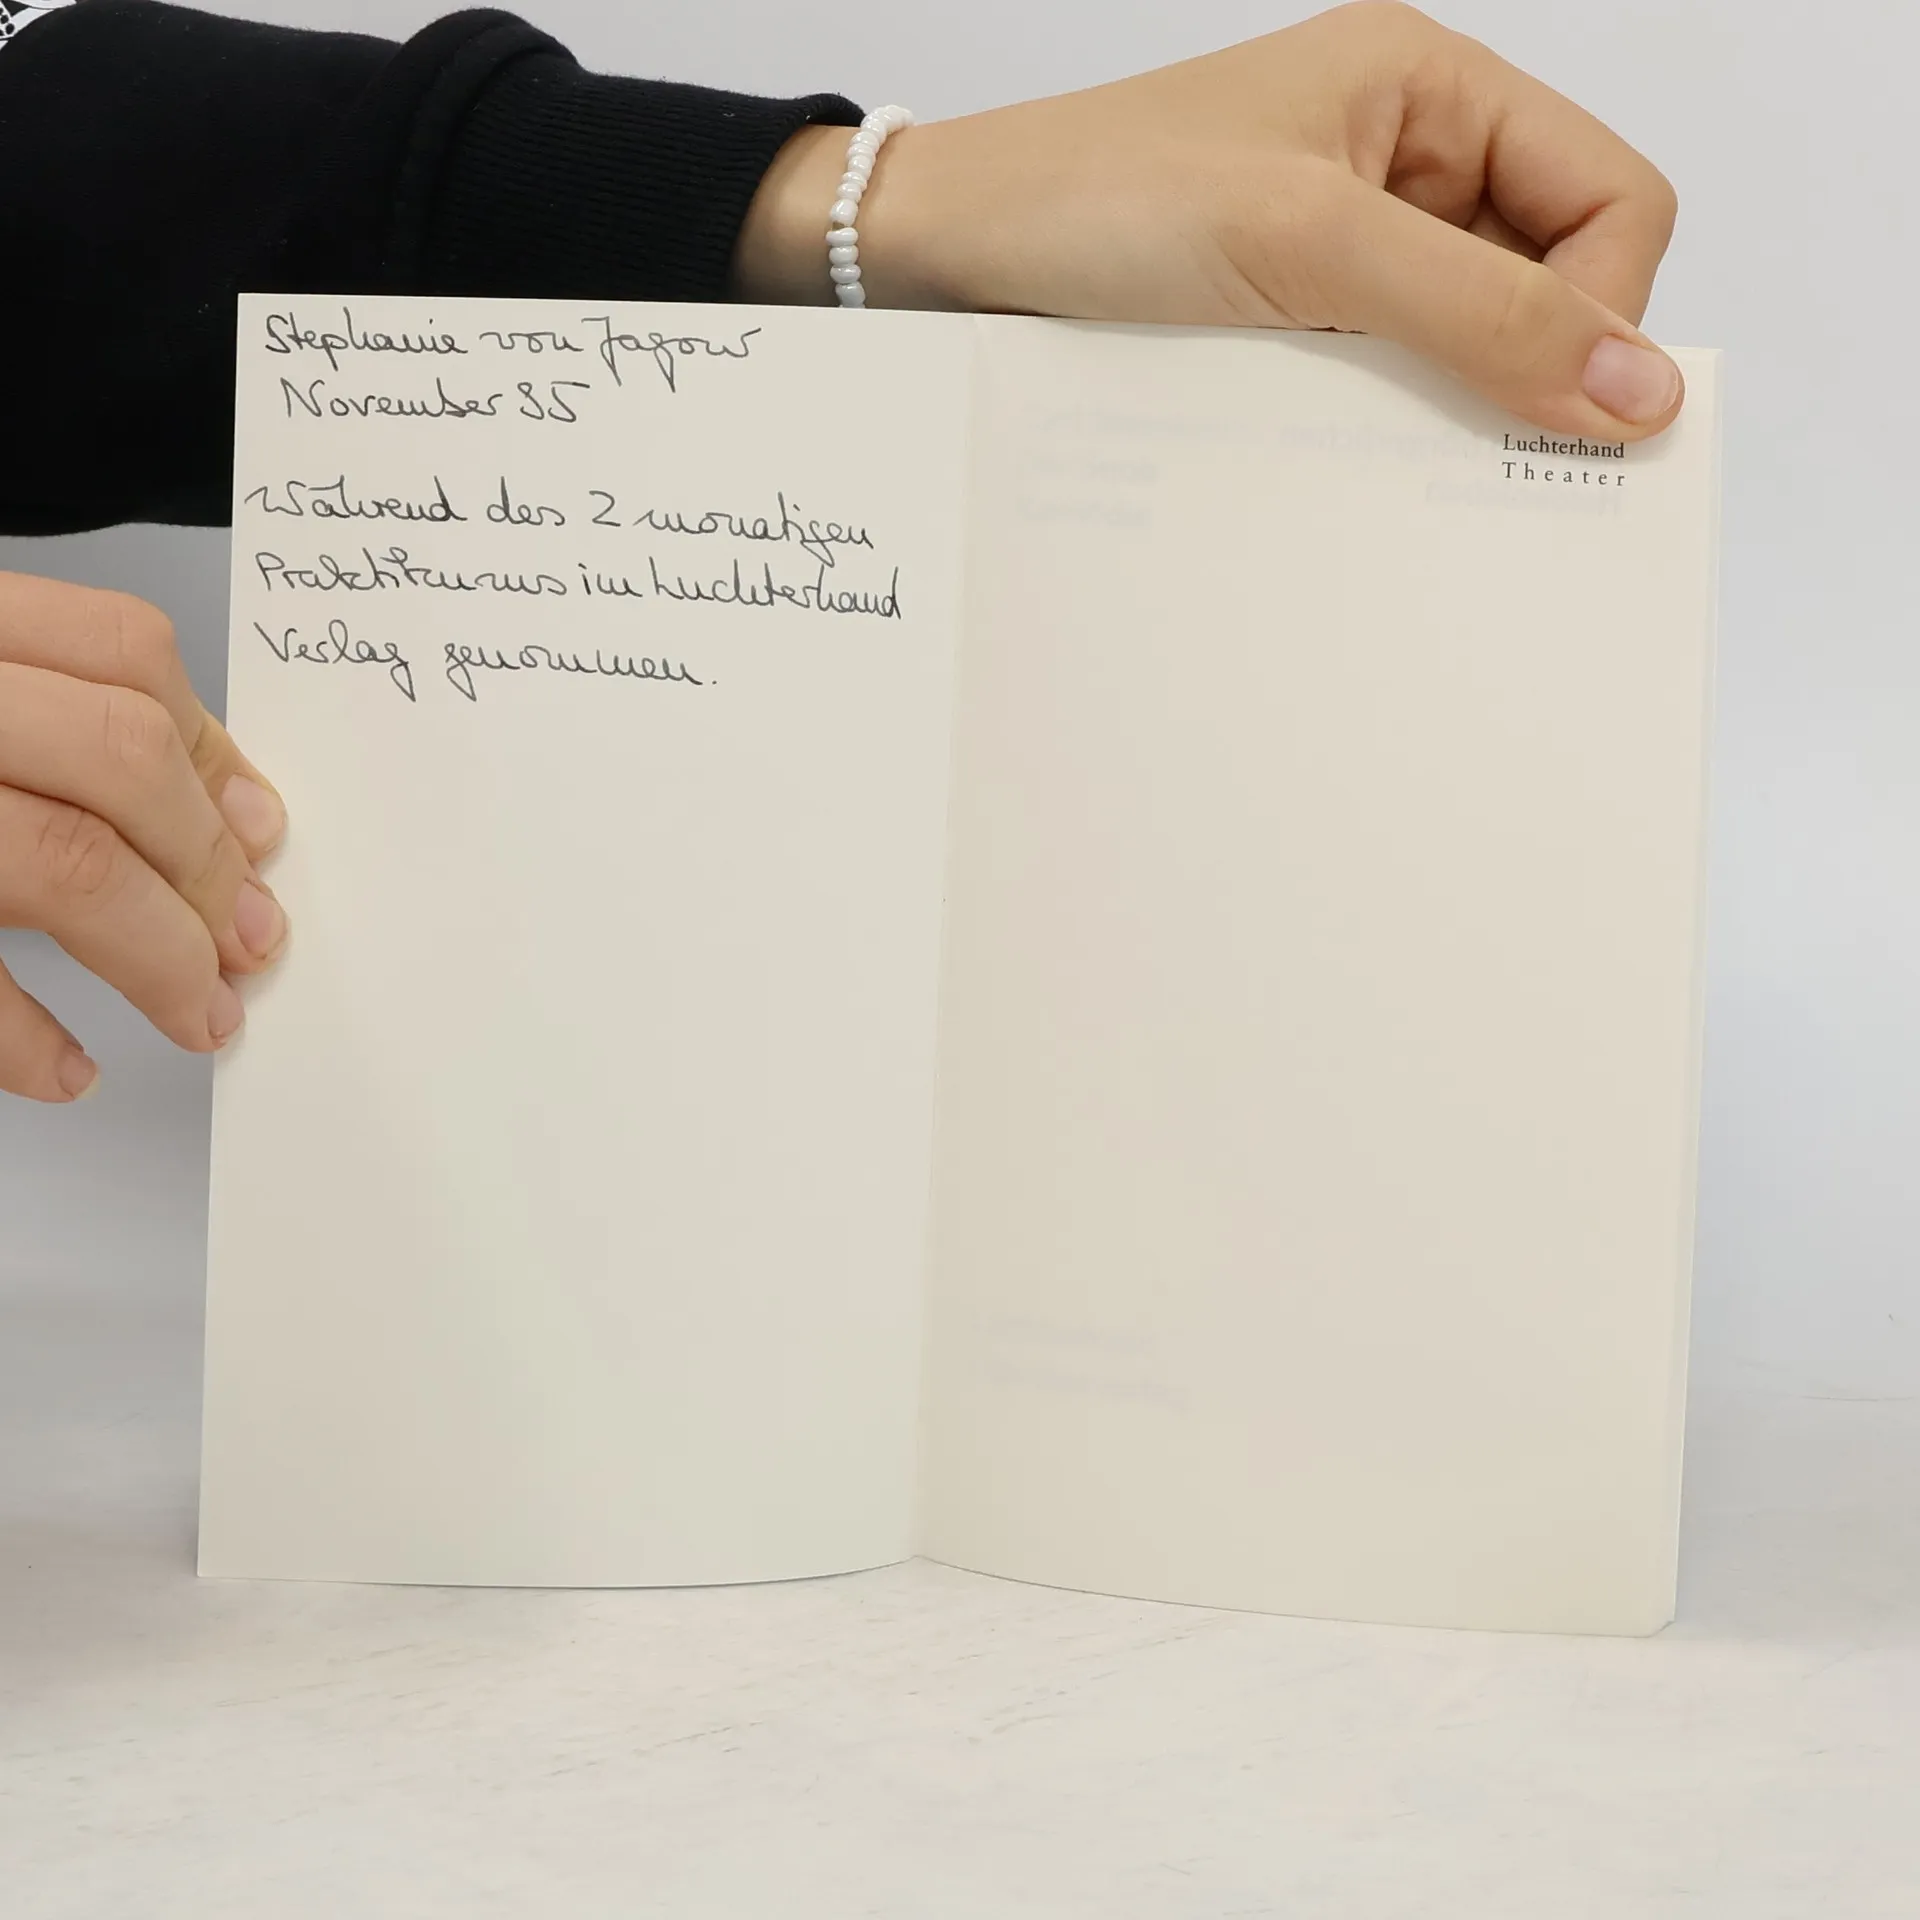 Stephanie von Jagow
November 95
Während des 2 monatigen
Praktikums im Luchterhand
Verlag genommen.
Luchterhand
Theater